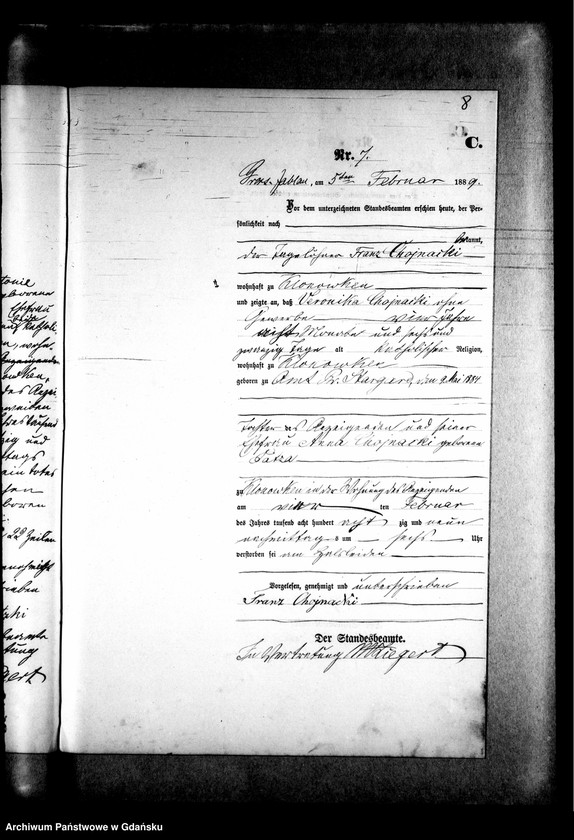 8
C.
Nr. 7.
Gross Jablau, am 5ten Februar 1889.
Vor dem unterzeichneten Standesbeamten erschien heute, der Per-
sönlichkeit nach
kannt,
der Tagelöhner Franz Chojnacki
wohnhaft zu Klonowken
und zeigte an, daß Veronika Chojnacki ohne
Gewerbe vier Jahre
acht Monate und sechs und
zwanzig Tage alt katholischer Religion,
wohnhaft zu Klonowken
geboren zu Amt Pr. Stargard, den 9. Mai 1884
Tochter des Anzeigenden und seiner
Ehefrau Anna Chojnacki geborene
zu Klonowken in der Wohnung des Anzeigenden
am vier ten Februar
des Jahres tausend acht hundert acht zig und neun
nachmittags um sechs Uhr
verstorben sei am Halsleiden
Vorgelesen, genehmigt und unterschrieben
Franz Chojnacki
Der Standesbeamte.
In Vertretung
Archiwum Państwowe w Gdańsku